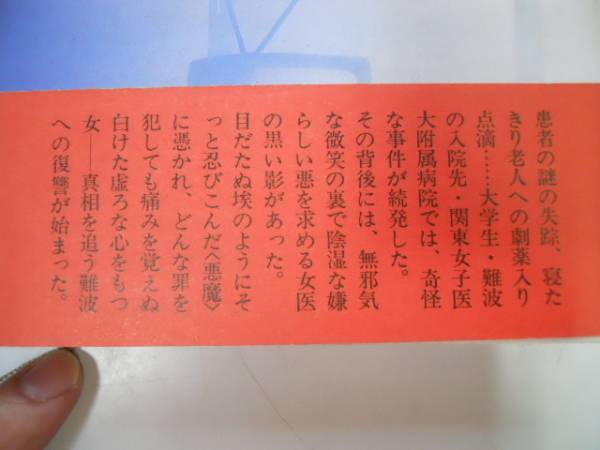 患者の謎の失踪、寝た
きり老人への劇薬入り
点滴……大学生・難波
の入院先・関東女子医
大附属病院では、奇怪
な事件が続発した。
その背後には、無邪気
な微笑の裏で陰湿な嫌
らしい悪を求める女医
の黒い影があった。
目だたぬ埃のようにそ
っと忍びこんだ〈悪魔〉
に憑かれ、どんな罪を
犯しても痛みを覚えぬ
白けた虚ろな心をもつ
女――真相を追う難波
への復讐が始まった。